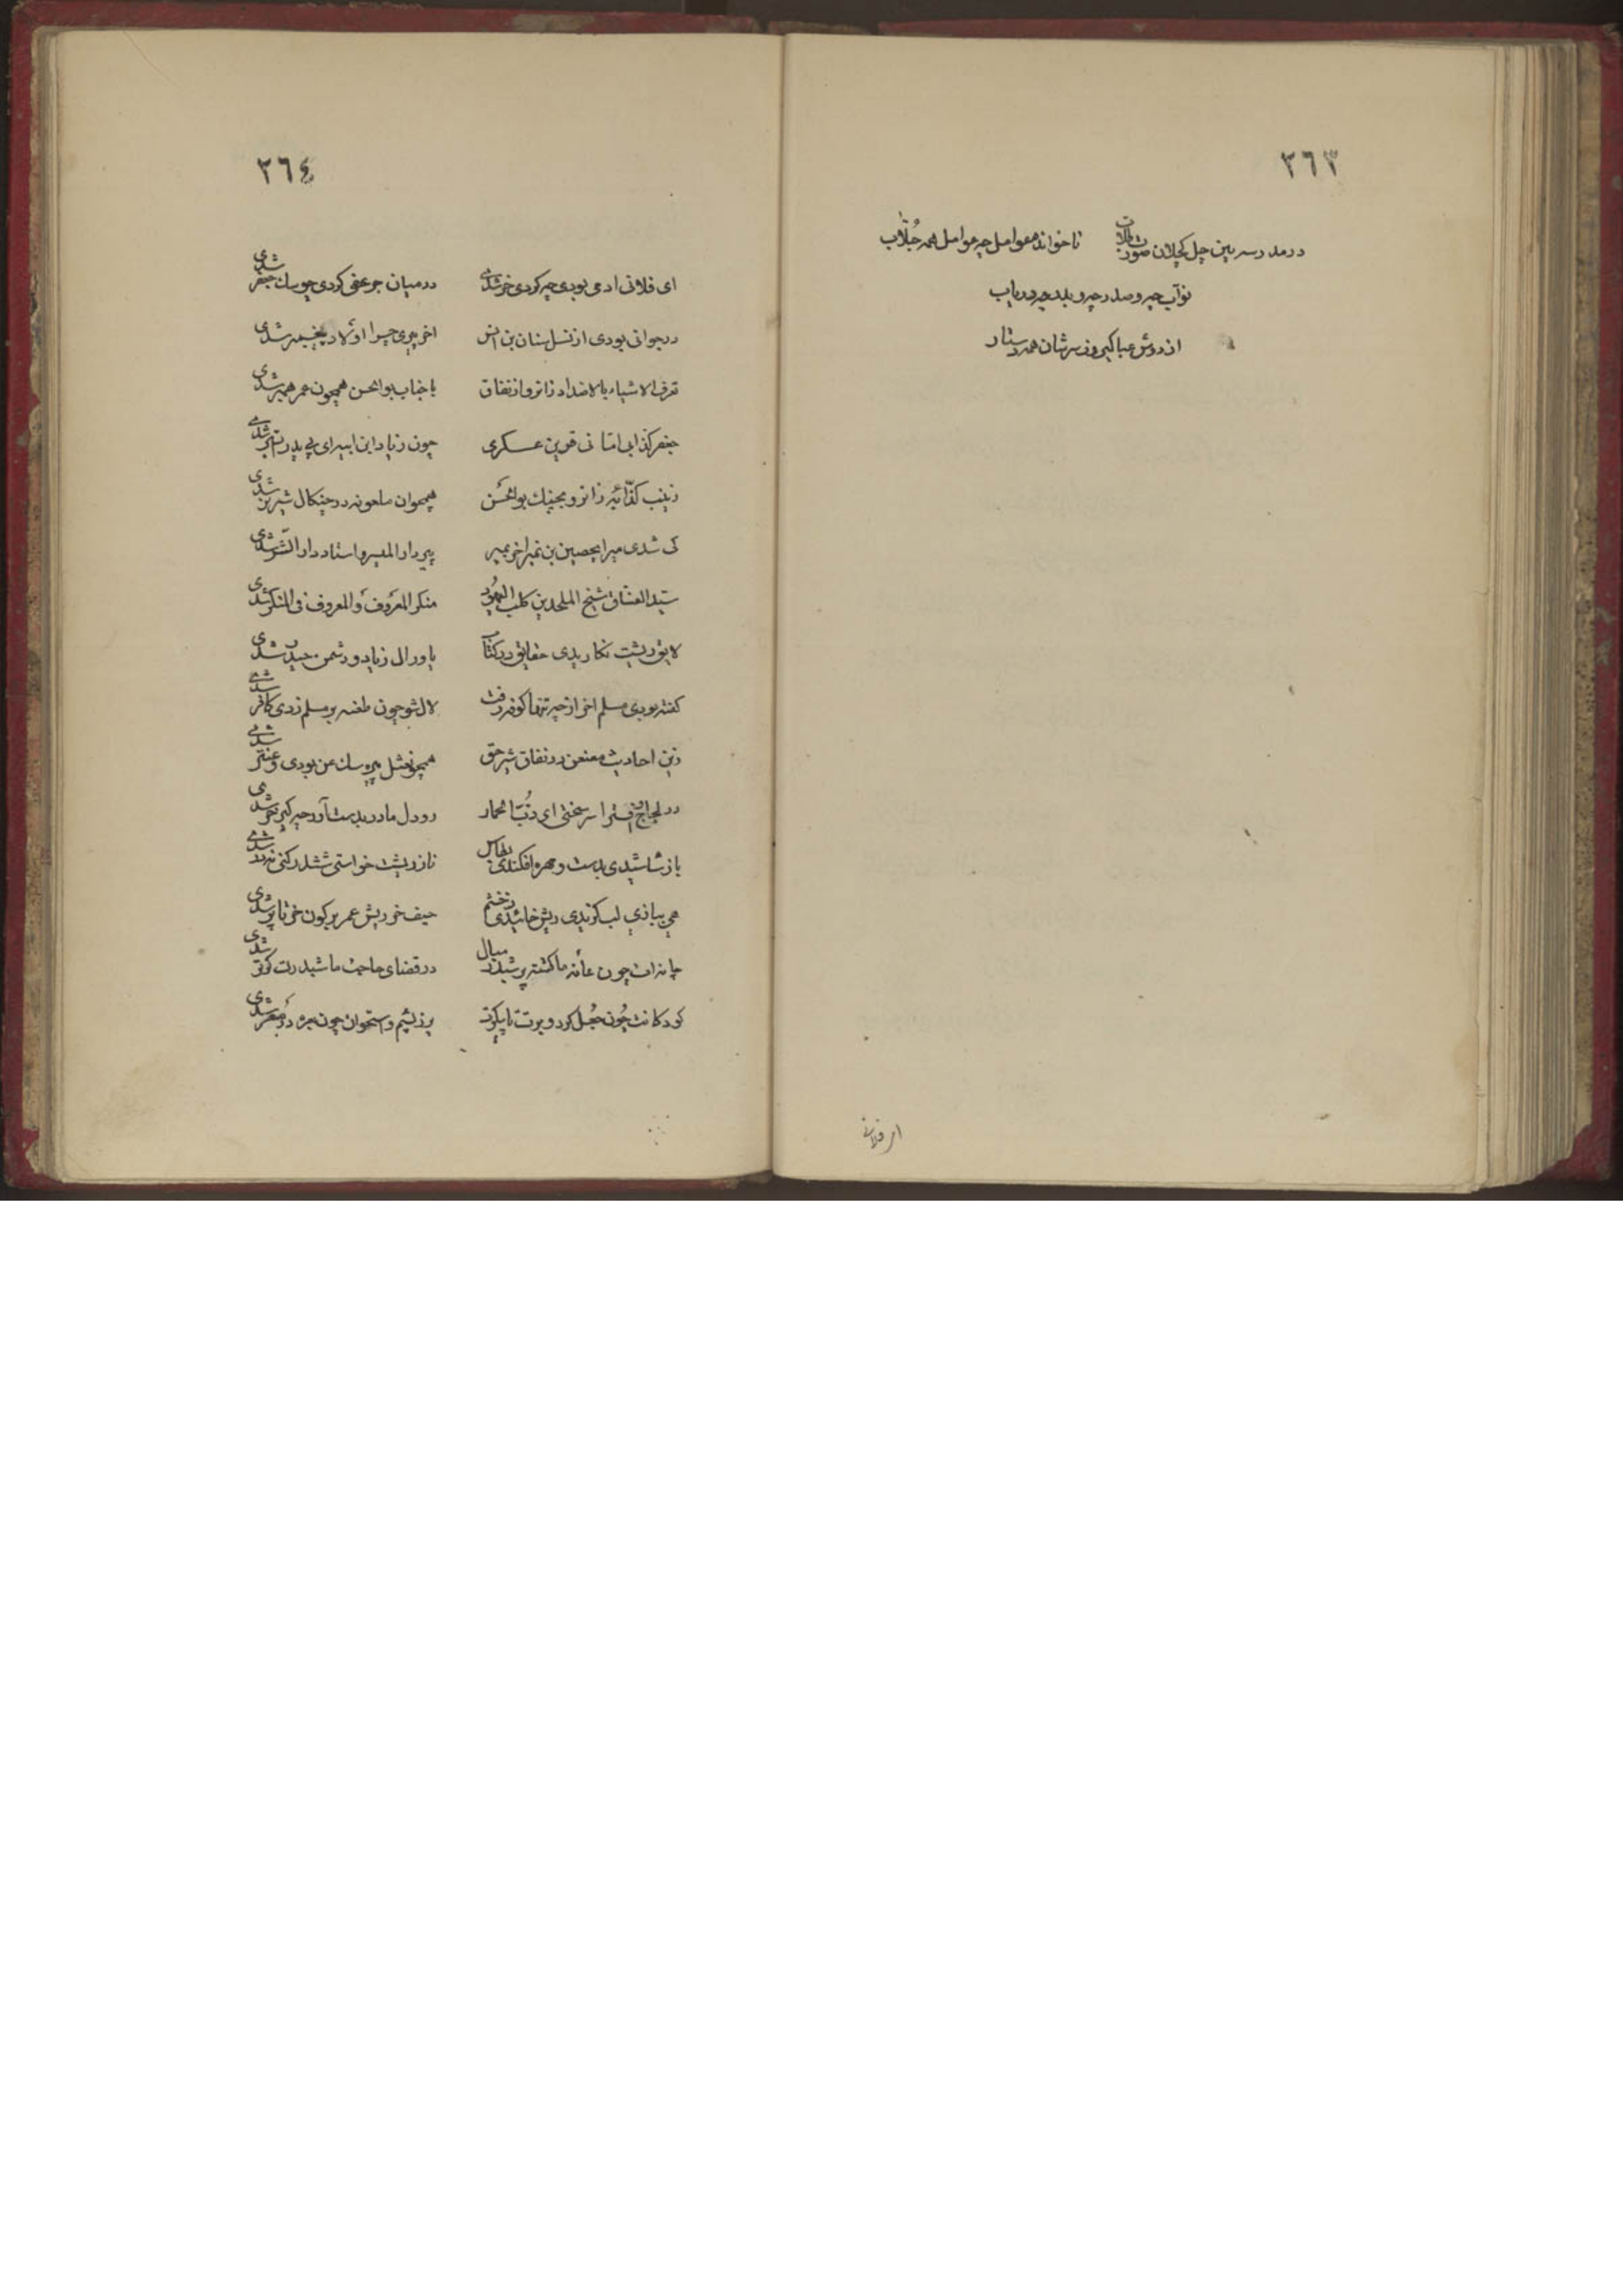 ٣٦٣
در مدرسه بین چل کچلان صورت طلاب ناخوانده عوامل چه عوامل همه جُلّاب
نوّاب چه و صدر چه و بلد چه دریاب
از دوش عبا کیر وز سرشان همه دستار
ای فلانی
٣٦٤
ای فلانی ادمی بودی چه کردی خر شدی در میان جر عنی کردی چو سك جعفر شدی
در جوانی بودی از نسل سنان بن انس اخر پیری چرا اولاد پیغمبر شدی
تعرف الاشیاء بالاضداد زانرو از نفاق با جناب بوالحسن همچون عمر همسر شدی
جعفر کذابی امّا نی قرین عسکری چون زیاد ابن ابیه ای بی پدر شدی
زینب کذّابه زانرو بجنك بوالحسن همچو ان ملعونه در چنكال شیر نر شدی
کی شدی میرا بحصین بن نمیر اخر بمیر پیر دار المیسر و استاد دار الشّر شدی
سیّد العشاق شیخ الملحدین کلب الیهود منکر المعروف و المعروف فی المنکر شدی
لایق ریشت نكاریدی حقایق در کتاب یاور ال زیاد و دشمن حیدر شدی
كفته بودی مسلم اخر از چه تنها کوفه رفت لال شو چون طعنه بر مسلم زدی کافر شدی
زین احادیث معنعن در نفاق شیر حق همچو نعثل پیر سك عن بودی و عنتر شدی
در لجاج افترا سر سختی ای دُبّ الحمار رو دل مادر بدست آور چه کیر خر شدی
باز شاشیدی بدست و مهره افکندی بطاس ناز ریشت خواستی ششدر کنی شدی
می ببازی لب کزیدی ریش خائیدی ز خشم حیف خر ریش عمر بر کون خر تا پر شدی
چانه ات چون عانه ما کشته پر شد در مبال در قضای حاجت ما شبدرت کوتر شدی
کودکانت چون جُعل کرد و برت تا پرز پشم و استخوان چون شدی